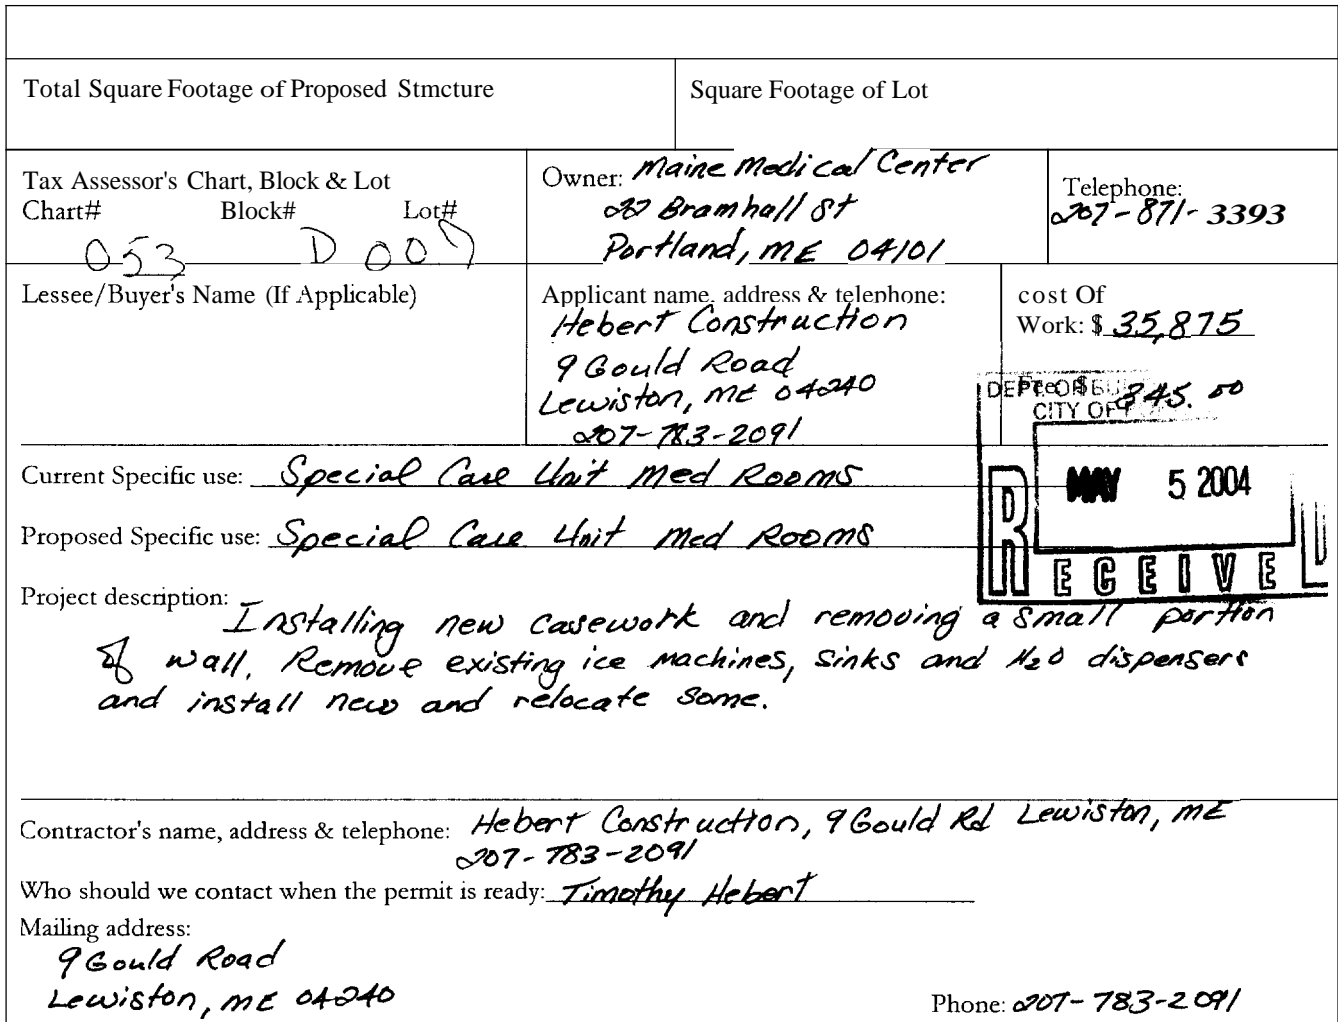 Total Square Footage of Proposed Stmcture
Square Footage of Lot
Tax Assessor's Chart, Block & Lot
Chart# Block# Lot#
053 D 007
Owner: Maine Medical Center
22 Bramhall St
Portland, ME 04101
Telephone:
207-871-3393
Lessee/Buyer's Name (If Applicable)
Applicant name, address & telephone:
Hebert Construction
9 Gould Road
Lewiston, ME 04240
207-783-2091
cost Of
Work: $ 35,875
Fee: $ 345.00
DEPT. OF BU
CITY OF
MAY 5 2004
RECEIVE
Current Specific use: Special Care Unit Med Rooms
Proposed Specific use: Special Care Unit Med Rooms
Project description:
Installing new casework and removing a small portion
of wall. Remove existing ice machines, sinks and H2O dispensers
and install new and relocate some.
Contractor's name, address & telephone: Hebert Construction, 9 Gould Rd Lewiston, ME
207-783-2091
Who should we contact when the permit is ready: Timothy Hebert
Mailing address:
9 Gould Road
Lewiston, ME 04240
Phone: 207-783-2091